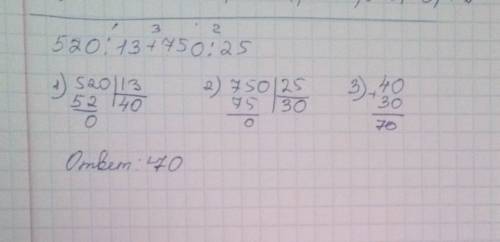 1 3 2
520:13+750:25
1) 520|13 2) 750|25 3) +40
52 40 75 30 30
0 0 70
Ответ: 70